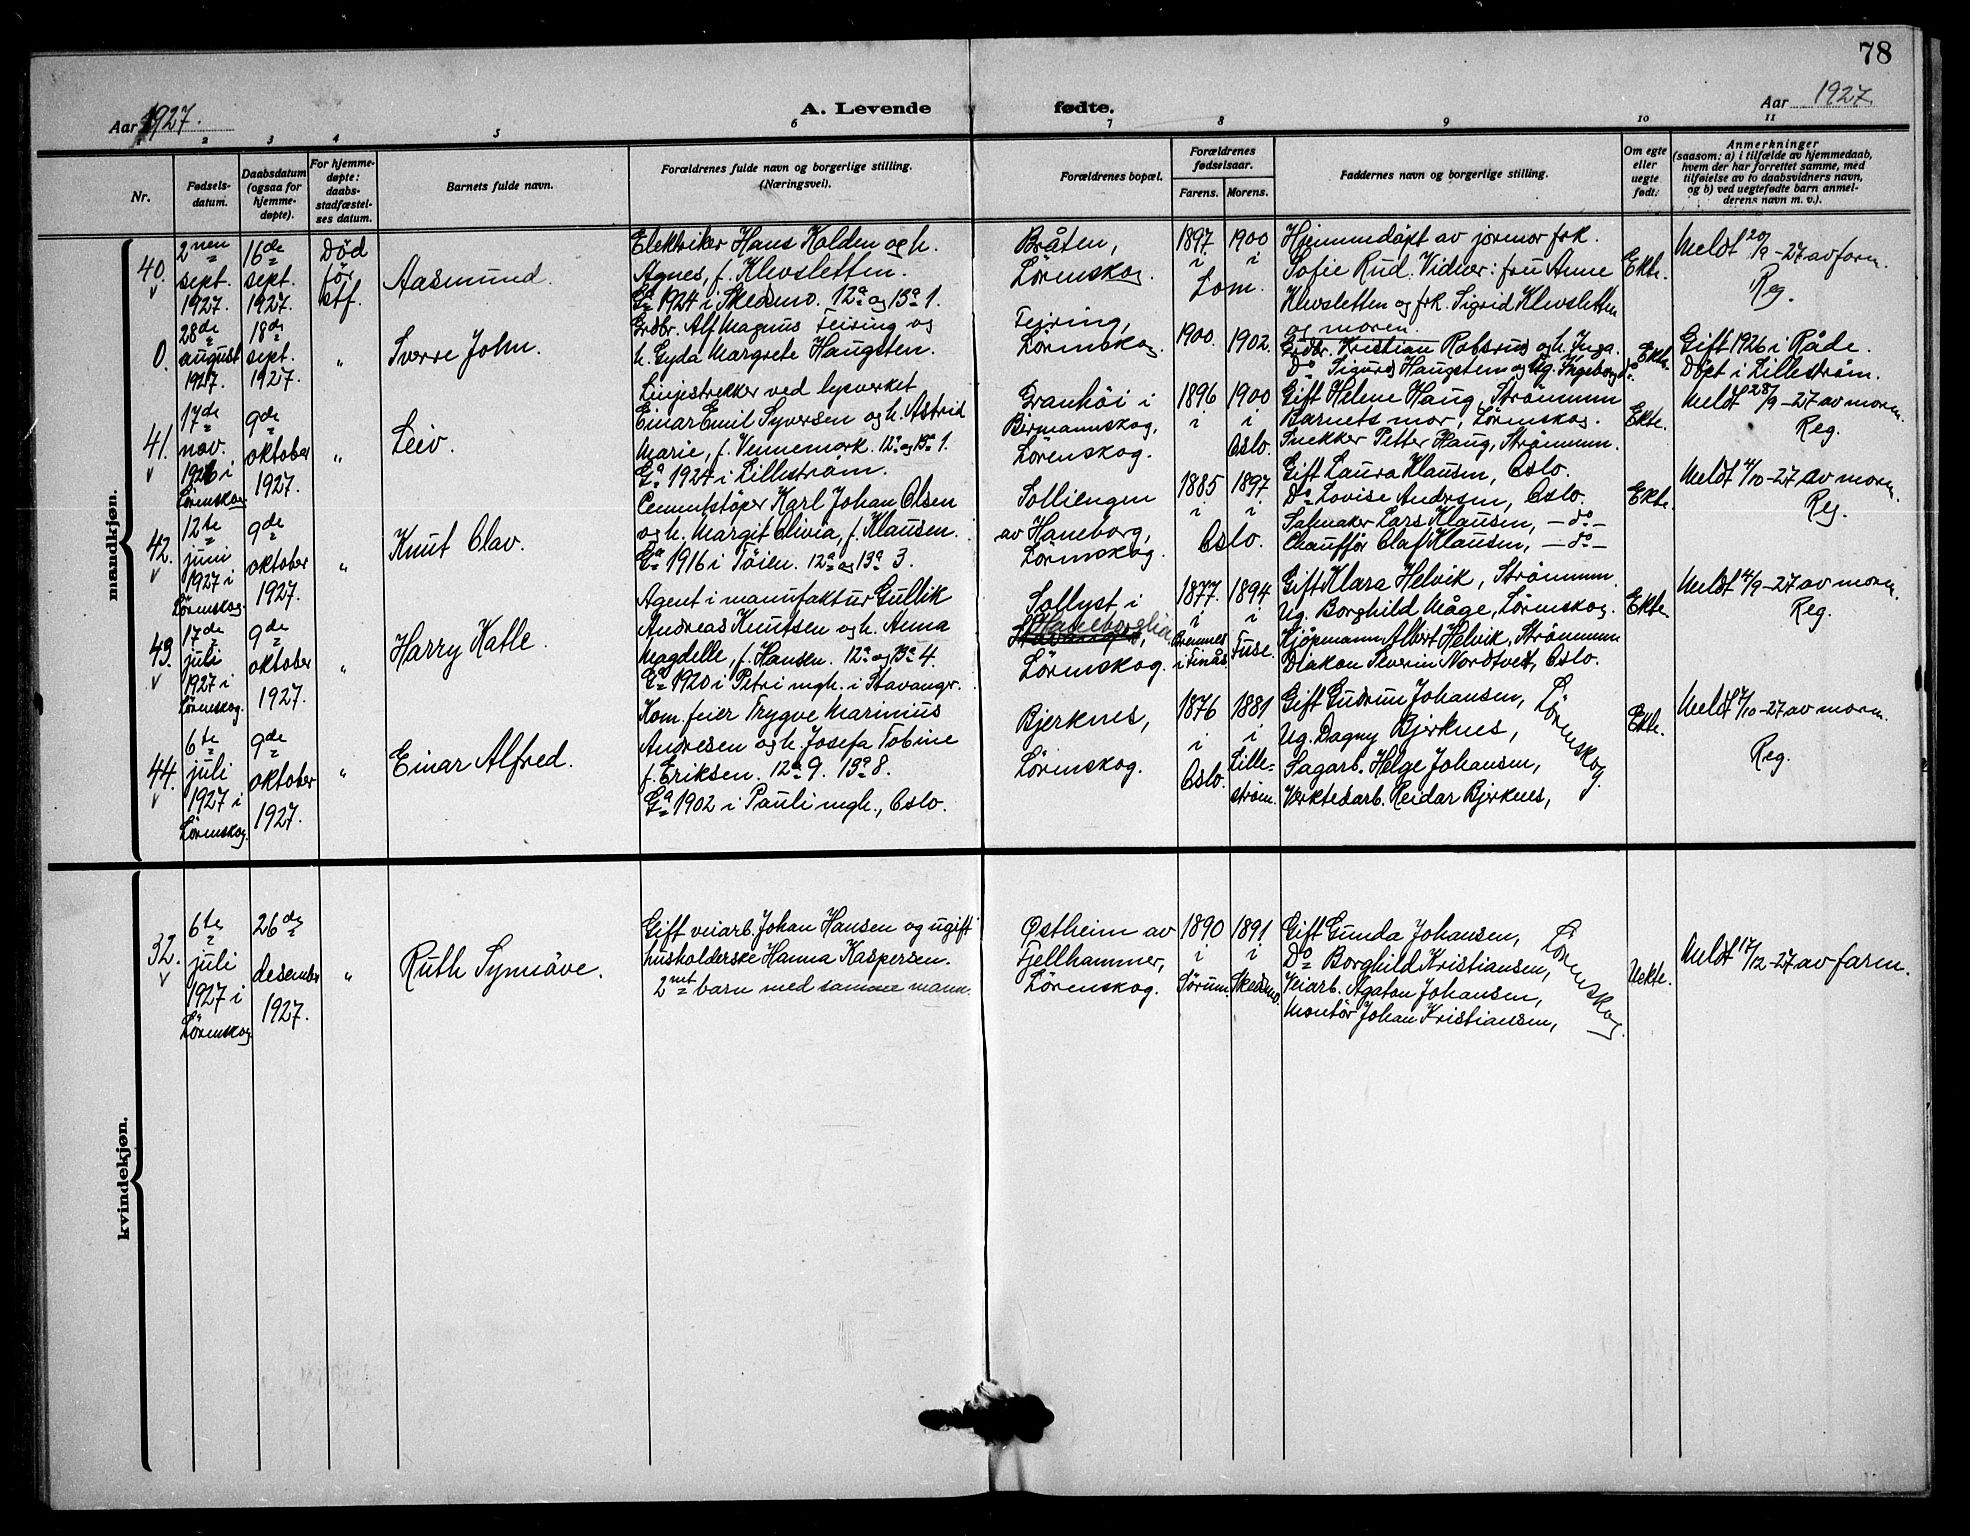 78
Aar 1927.
A. Levende fødte.
Aar 1927.
1 2 3 4 5 6 7 8 9 10 11
Nr.
Fødsels-
datum.
Daabsdatum
(ogsaa for
hjemme-
døpte).
For hjemme-
døpte:
daabs-
stadfæstel-
ses datum.
Barnets fulde navn.
Forældrenes fulde navn og borgerlige stilling.
(Næringsvei).
Forældrenes bopæl.
Forældrenes
fødselsaar.
Farens. Morens.
Faddernes navn og borgerlige stilling.
Om egte
eller
uegte
født:
Anmerkninger
(saasom: a) i tilfælde av hjemmedaab,
hvem der har forrettet samme, med
tilføielse av to daabsvidners navn,
og b) ved uegtefødte barn anmel-
derens navn m. v.).
mandkjøn.
40.
v
2nen
sept.
1927.
16de
sept.
1927.
Død
før
stf.
Aasmund.
Elektriker Hans Kolden og h.
Agnes, f. Klevsletten.
Ga 1924 i Skedsmo. 12a og 13a 1.
Bråten,
Lørenskog.
1897 1900
i i
Lom.
Hjemmedøpt av jormor frk.
Sofie Rud. Vidner: fru Anne
Klevsletten og frk. Sigrid Klevsletten
og moren.
Ekte.
Meldt 20/9-27 av farm.
Reg.
0.
28de
august
1927.
18de
sept.
1927.
"
Sverre John.
Grdbr. Alf Magnus Feiring og
h. Gyda Margrete Haugsten.
Feiring,
Lørenskog.
1900. 1902.
Grdbr. Kristian Robsrud og h. Inga.
Do Sigurd Haugsten og Ug. Ingeborg do.
Ekte.
Gift 1926 i Råde.
Døpt i Lillestrøm.
41.
v
17de
nov.
1926 i
Lørenskog
9de
oktober
1927.
"
Leiv.
Linjestrekker ved lysverket
Einar Emil Syversen og h. Astrid
Marie, f. Vennemark. 12a og 13a 1.
Ga 1924 i Lillestrøm.
Granhøi i
Bjermannskog,
Lørenskog.
1896 1900
i i
Oslo.
Gift Helene Haug, Strømmen
Barnets mor, Lørenskog.
Snekker Petter Haug, Strømmen.
Ekte.
Meldt 28/9-27 av morm.
Reg.
42.
v
12te
juni
1927 i
Lørenskog.
9de
oktober
1927.
"
Knut Olav.
Cementstøper Karl Johan Olsen
og h. Margit Olivia, f. Klausen.
Ga 1916 i Tøien. 12a og 13a 3.
Solliengen
av Haneborg,
Lørenskog.
1885 1897
i i
Oslo.
Gift Laura Klausen, Oslo.
Do Lovise Andersen, Oslo.
Salmaker Lars Klausen, — do —
Chauffør Olaf Klausen, — do —
Ekte.
Meldt 4/10-27 av morm.
Reg.
43.
v
17de
juli
1927 i
Lørenskog.
9de
oktober
1927.
"
Harry Kalle.
Agent i manufaktur Gullik
Andreas Knutsen og h. Anna
Magdelle, f. Hansen. 12a og 13a 4.
Ga 1920 i Petri mgh. i Stavanger.
Sollyst i
Haneborglia
Lørenskog.
1877. 1894
i i
Bremnes
i Finås. Fuse.
Gift Klara Helvik, Strømmen.
Ug. Borghild Måge, Lørenskog.
Kjøpmann Albert Helvik, Strømmen
Diakon Severin Nordtvet, Oslo.
Ekte
Meldt 4/9-27 av morm.
Reg.
44.
v
6te
juli
1927 i
Lørenskog.
9de
oktober
1927.
"
Einar Alfred.
Kom. feier Trygve Marinius
Andresen og h. Josefa Tobine
f. Eriksen. 12a 9. 13a 8.
Ga 1902 i Pauli mgh., Oslo.
Bjerknes,
Lørenskog.
1876 1881
i i
Oslo. Lille-
strøm.
Gift Gudrun Johansen,
Ug. Dagny Bjerknes,
Sagarb. Helge Johansen,
Verktedarb. Reidar Bjerknes,
Lørenskog.
Ekte.
Meldt 7/10-27 av morm.
Reg.
kvindekjøn.
32.
v
6te
juli
1927 i
Lørenskog
26de
desember
1927.
"
Ruth Synnøve.
Gift veiarb. Johan Hansen og ugift
husholderske Hanna Kaspersen.
2net barn med samme mann.
Østheim av
Fjellhammer,
Lørenskog.
1890 1891
i i
Sørum. Skedsmo.
Gift Gunda Johansen,
Do Borghild Kristiansen,
Veiarb. Agaton Johansen,
Montør Johan Kristiansen,
Lørenskog.
Uekte.
Meldt 17/12-27 av faren.